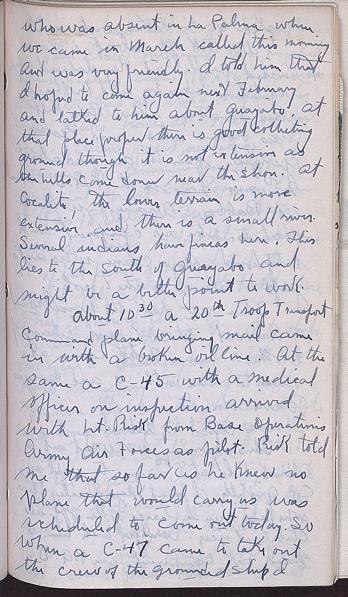 who was absent in La Palma when
we came in March called this morning
and was very friendly. I told him that
I hoped to come again next February
and talked to him about Guayabo. At
that place proper there is good collecting
ground though it is not extensive as
the hills come down near the shore. At
Cocalito, the lower terrain is more
extensive, and there is a small river.
Several indians have fincas here. This
lies to the South of Guayabo and
might be a better point to work.
About 10³⁰ a 20th Troop Transport
Command plane bringing mail came
in with a broken oil line. At the
same a C-45 with a medical
officer on inspection arrived
with Lt. Risk from Base Operations
Army Air Forces as pilot. Risk told
me that so far as he knew no
plane that would carry us was
scheduled to come out today. So
when a C-47 came to take out
the crew of the grounded ship I